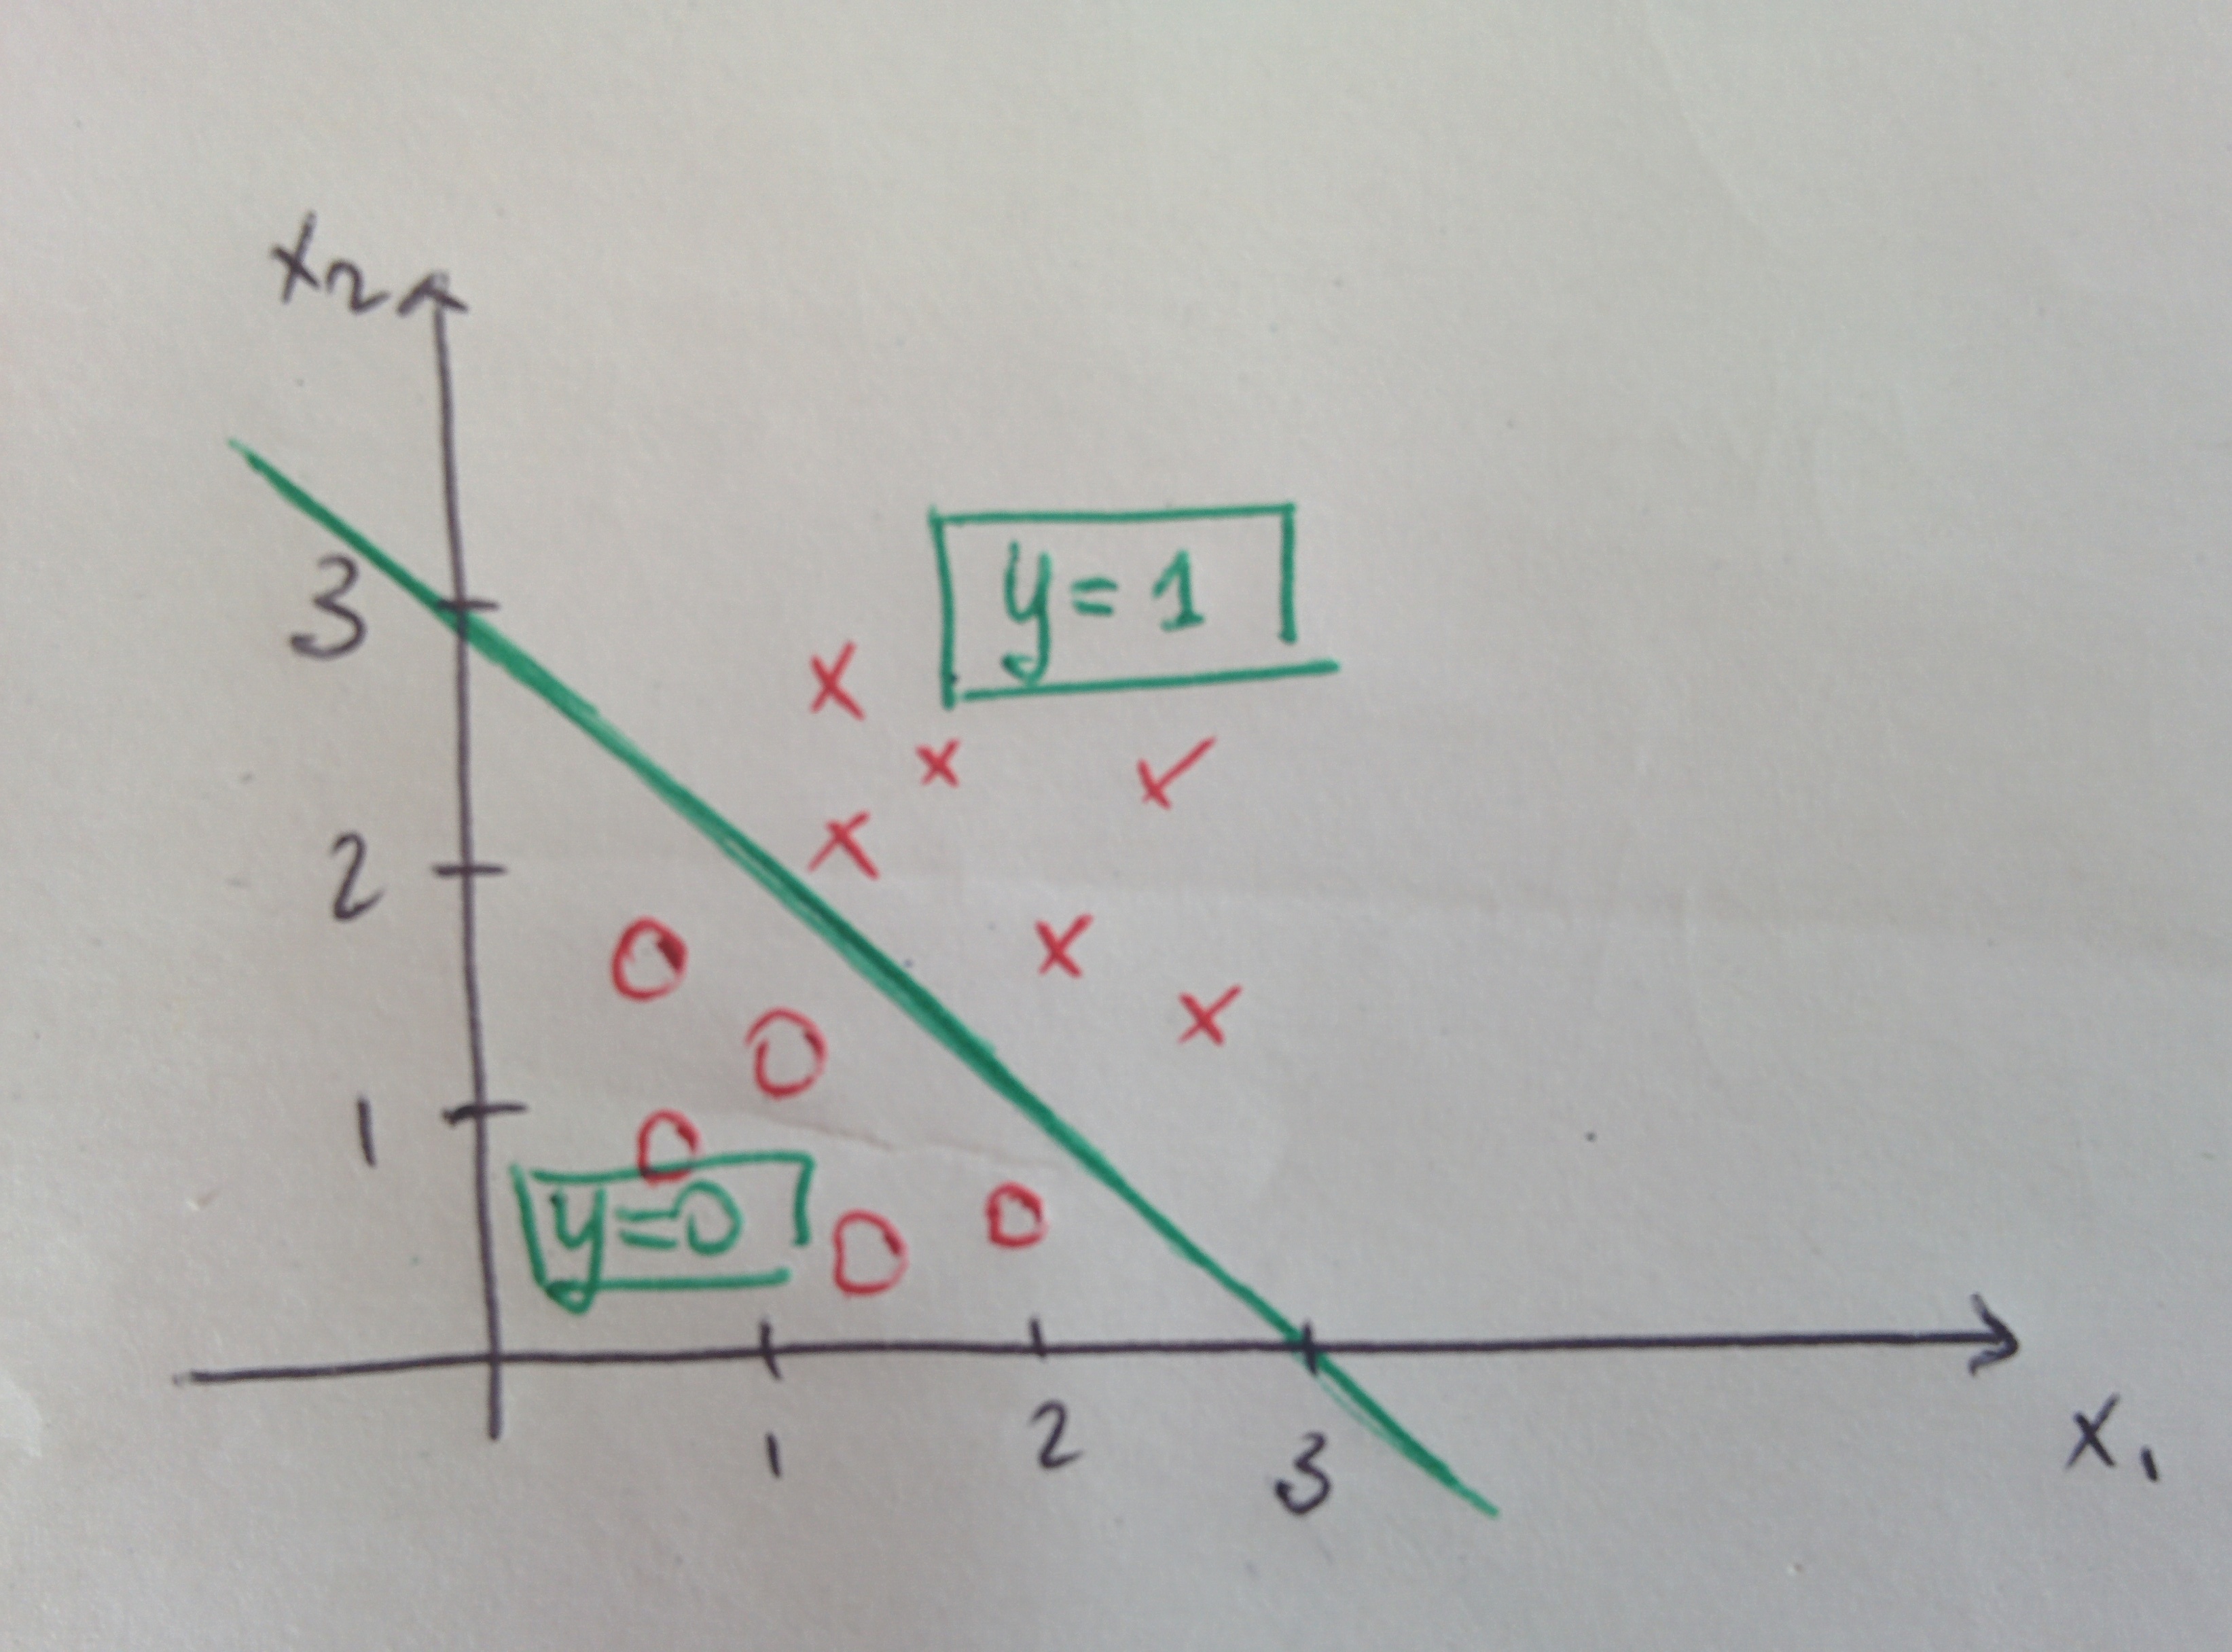 x2
3
y=1
2
1
y=0
1 2 3
x1